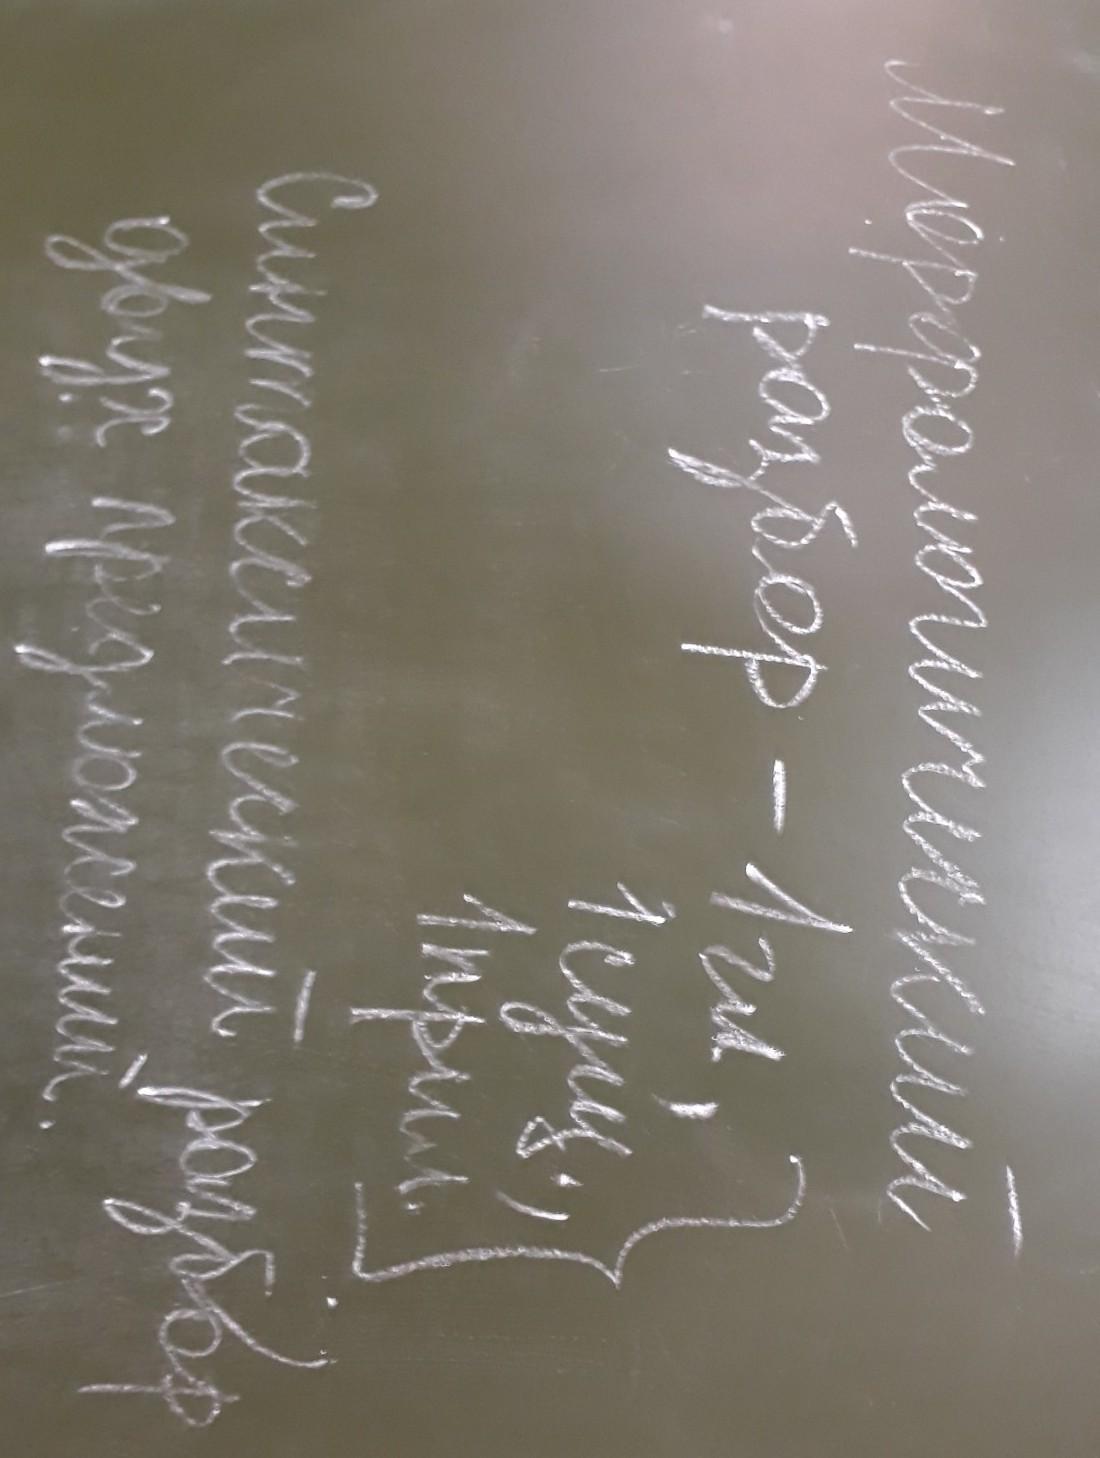 Морфологический
разбор – 1 гл.,
1 сущ.,
1 прил.
Синтаксический разбор
двух предложений.